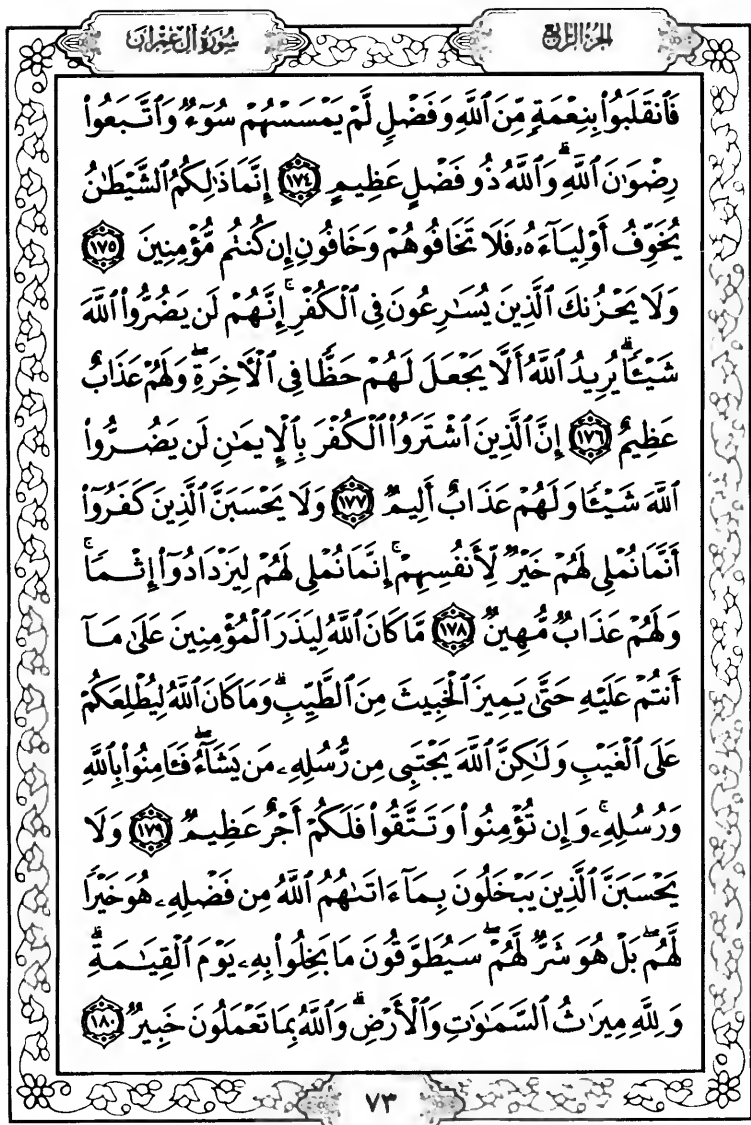 سُورَةُ آلِ عِمْرَان
الجُزْءُ الرَّابِعُ
فَٱنقَلَبُوا۟ بِنِعْمَةٍ مِّنَ ٱللَّهِ وَفَضْلٍ لَّمْ يَمْسَسْهُمْ سُوٓءٌ وَٱتَّبَعُوا۟
رِضْوَٰنَ ٱللَّهِ ۗ وَٱللَّهُ ذُو فَضْلٍ عَظِيمٍ ١٧٤ إِنَّمَا ذَٰلِكُمُ ٱلشَّيْطَٰنُ
يُخَوِّفُ أَوْلِيَآءَهُۥ فَلَا تَخَافُوهُمْ وَخَافُونِ إِن كُنتُم مُّؤْمِنِينَ ١٧٥
وَلَا يَحْزُنكَ ٱلَّذِينَ يُسَٰرِعُونَ فِى ٱلْكُفْرِ ۚ إِنَّهُمْ لَن يَضُرُّوا۟ ٱللَّهَ
شَيْـًٔا ۗ يُرِيدُ ٱللَّهُ أَلَّا يَجْعَلَ لَهُمْ حَظًّا فِى ٱلْـَٔاخِرَةِ ۖ وَلَهُمْ عَذَابٌ
عَظِيمٌ ١٧٦ إِنَّ ٱلَّذِينَ ٱشْتَرَوُا۟ ٱلْكُفْرَ بِٱلْإِيمَٰنِ لَن يَضُرُّوا۟
ٱللَّهَ شَيْـًٔا وَلَهُمْ عَذَابٌ أَلِيمٌ ١٧٧ وَلَا يَحْسَبَنَّ ٱلَّذِينَ كَفَرُوٓا۟
أَنَّمَا نُمْلِى لَهُمْ خَيْرٌ لِّأَنفُسِهِمْ ۚ إِنَّمَا نُمْلِى لَهُمْ لِيَزْدَادُوٓا۟ إِثْمًا ۚ
وَلَهُمْ عَذَابٌ مُّهِينٌ ١٧٨ مَّا كَانَ ٱللَّهُ لِيَذَرَ ٱلْمُؤْمِنِينَ عَلَىٰ مَآ
أَنتُمْ عَلَيْهِ حَتَّىٰ يَمِيزَ ٱلْخَبِيثَ مِنَ ٱلطَّيِّبِ ۗ وَمَا كَانَ ٱللَّهُ لِيُطْلِعَكُمْ
عَلَى ٱلْغَيْبِ وَلَٰكِنَّ ٱللَّهَ يَجْتَبِى مِن رُّسُلِهِۦ مَن يَشَآءُ ۖ فَـَٔامِنُوا۟ بِٱللَّهِ
وَرُسُلِهِۦ ۚ وَإِن تُؤْمِنُوا۟ وَتَتَّقُوا۟ فَلَكُمْ أَجْرٌ عَظِيمٌ ١٧٩ وَلَا
يَحْسَبَنَّ ٱلَّذِينَ يَبْخَلُونَ بِمَآ ءَاتَىٰهُمُ ٱللَّهُ مِن فَضْلِهِۦ هُوَ خَيْرًا
لَّهُم ۖ بَلْ هُوَ شَرٌّ لَّهُمْ ۖ سَيُطَوَّقُونَ مَا بَخِلُوا۟ بِهِۦ يَوْمَ ٱلْقِيَٰمَةِ ۗ
وَلِلَّهِ مِيرَٰثُ ٱلسَّمَٰوَٰتِ وَٱلْأَرْضِ ۗ وَٱللَّهُ بِمَا تَعْمَلُونَ خَبِيرٌ ١٨٠
٧٣